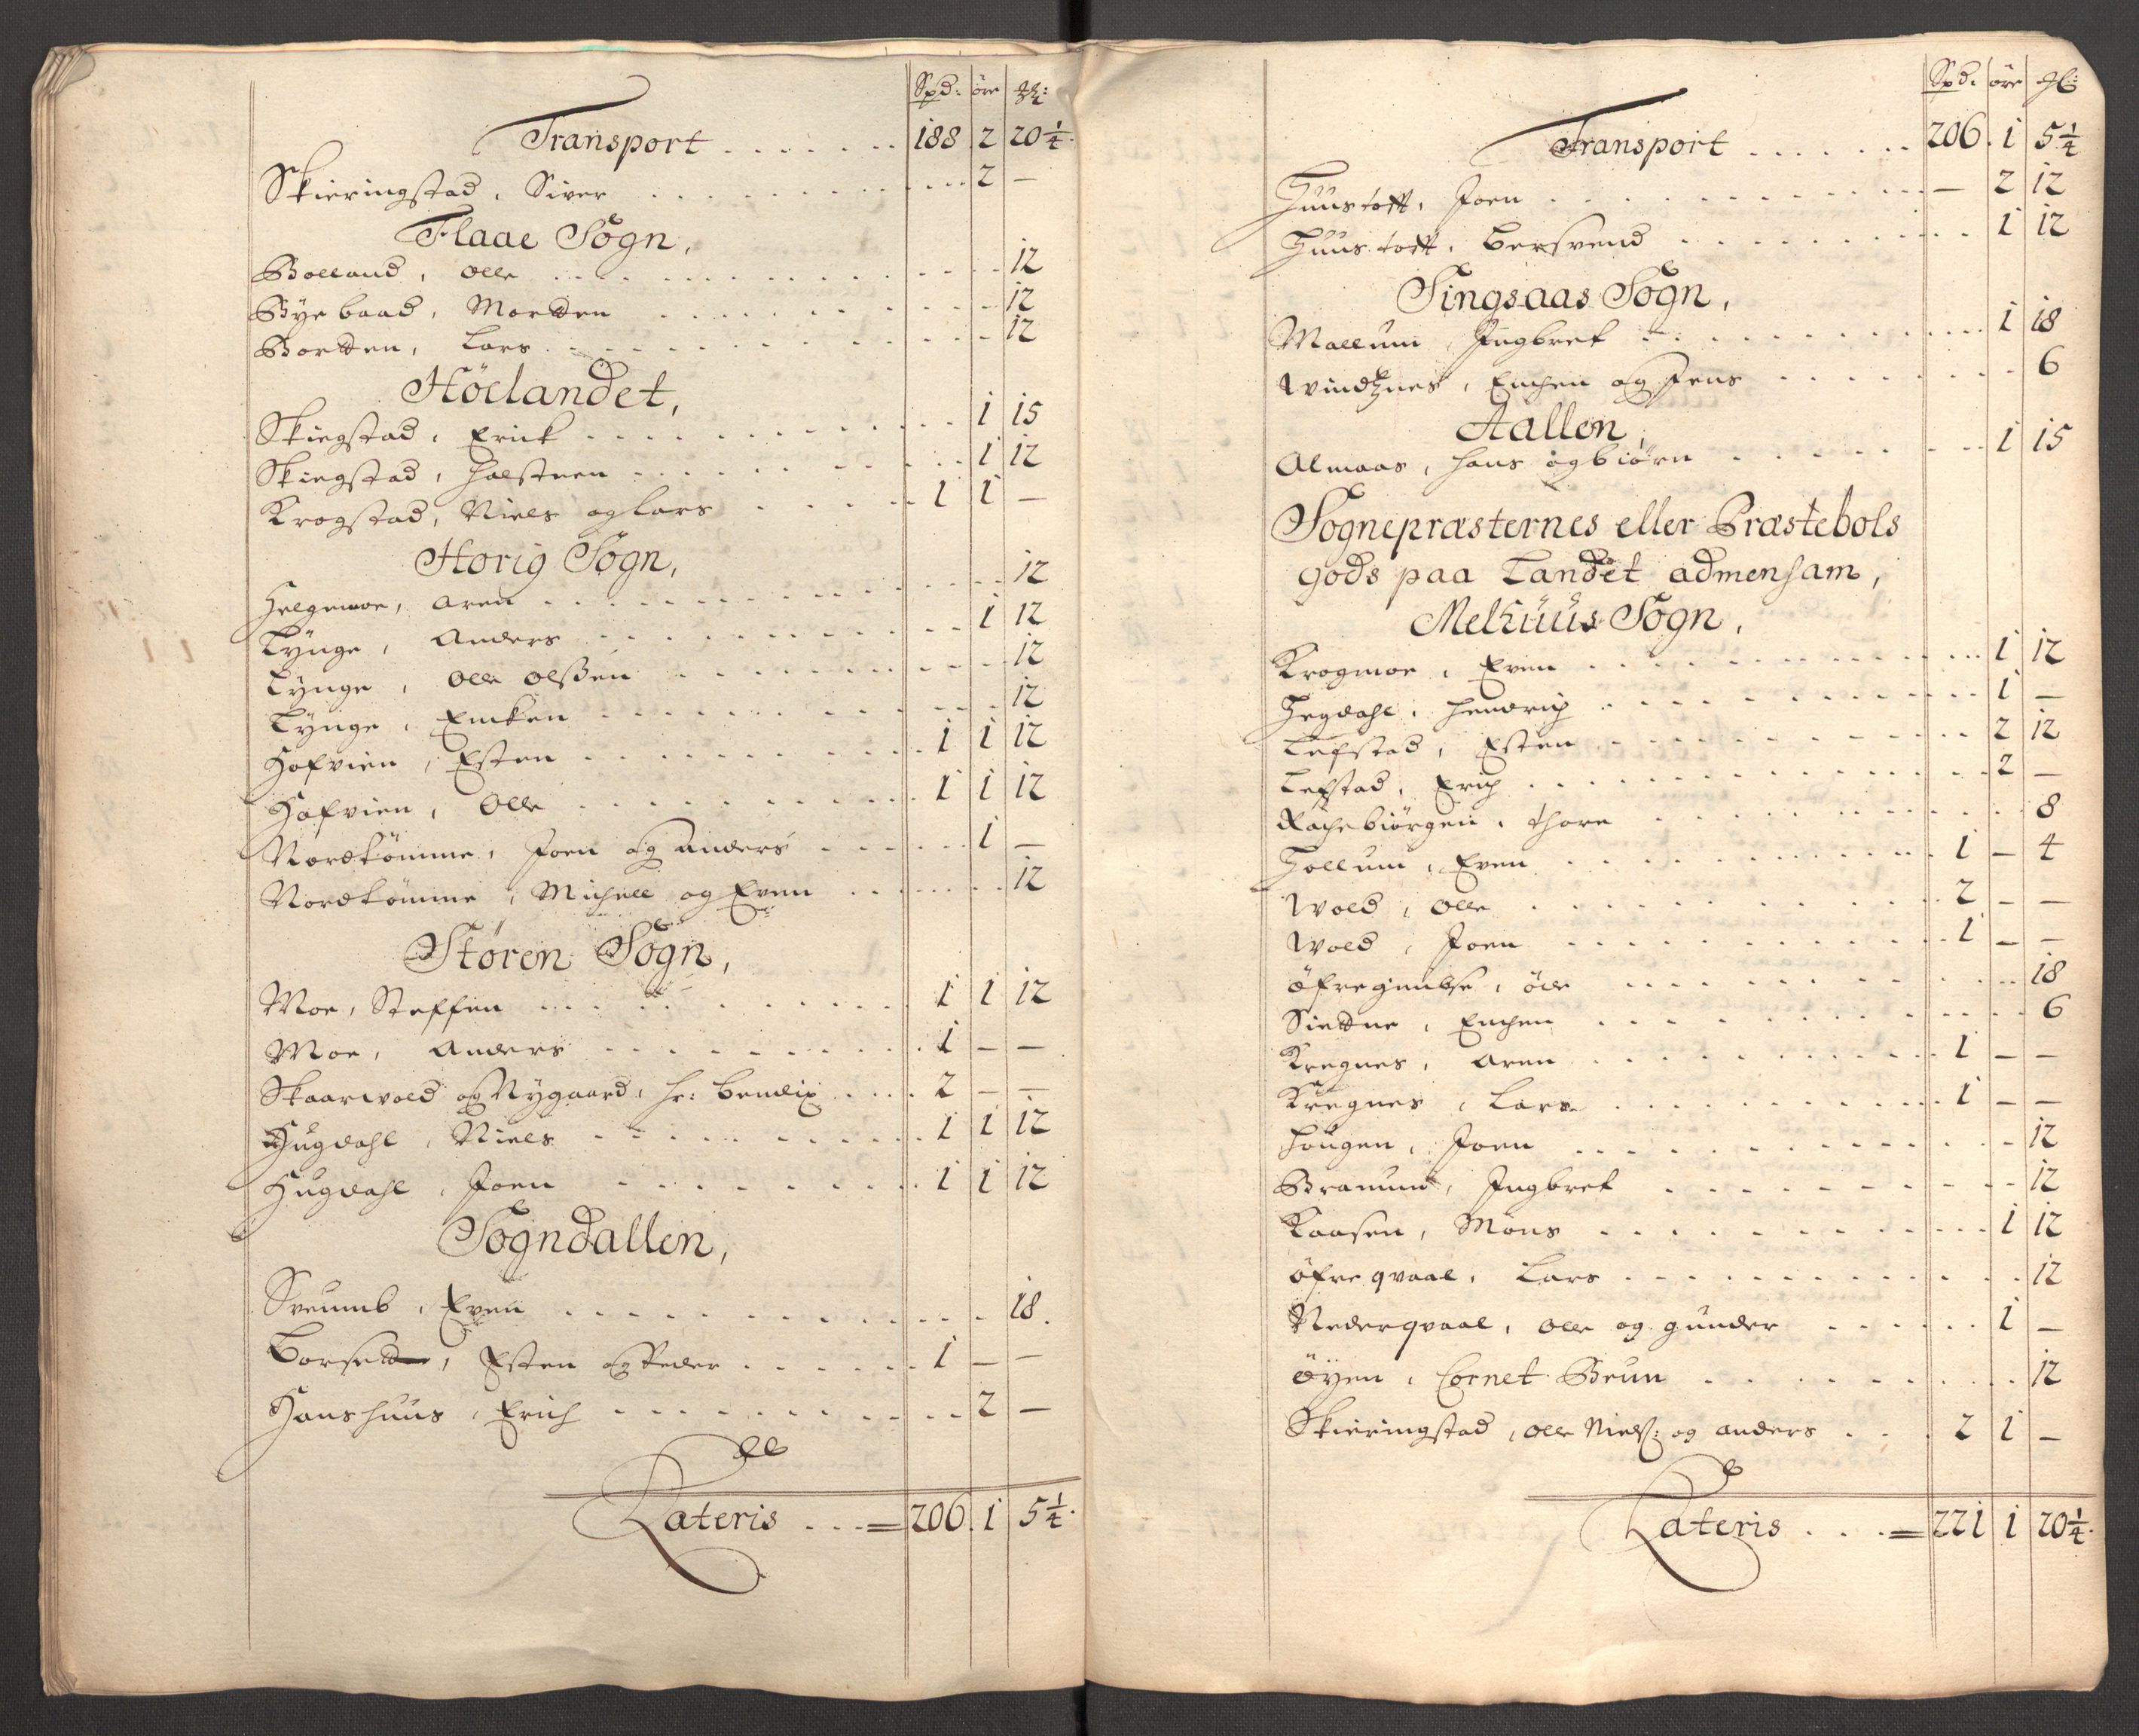 Spd: öre
Transport . . . . . . . 188 2 20 1/4
Skieringstad, Siver . . . . . . . . . 2 —
Flaae Sogn,
Bolland, Olle . . . . . . . . . 12
Byebaad, Morten . . . . . . . . 12
Borten, Lars . . . . . . . . . 12
Höelandet,
Skiegstad, Erick . . . . . . . . 1 15
Skiegstad, Halsteen . . . . . . . 1 12
Krogstad, Niels og Lars . . . . 1 1 —
Horig Sogn,
Helgemoe, Aren . . . . . . . . 12
Lynge, Anders . . . . . . . . 1 12
Lynge, Olle Olssen . . . . . . . 12
Lynge, Encken . . . . . . . . 12
Hofvien, Esten . . . . . . . 1 1 12
Hofvien, Olle . . . . . . . 1 1 12
Nordtömme, Joen og Anders . . . . 1 —
Nordtömme, Michell og Even . . . . 12
Stören Sogn,
Moe, Steffen . . . . . . . 1 1 12
Moe, Anders . . . . . . . 1 — —
Skaarvold og Nygaard, Hr: Bendix . . . . 2 — —
Hugdahl, Niels . . . . . . . 1 1 12
Hugdahl, Joen . . . . . . . 1 1 12
Sogndallen,
Sveumb, Even . . . . . . . . . 18.
Borset, Esten og Peder . . . . . . 1 — —
Hanshuus, Erich . . . . . . . . 2 —
Lateris . . . = 206. 1 5 1/4.
Spd. öre
Transport . . . . . . . 206. 1 5 1/4
Huustoft, Joen . . . . . . . . — 2 12
Huustoft, Bersvend . . . . . . . . 1 12
Singsaas Sogn,
Mallum, Ingbret . . . . . . . . 1 18
Windtznes, Enchen og Jens . . . . . . 6
Aallen,
Almaas, Hans og biörn . . . . . . 1 15
Sognepræsternes eller Præstebols
gods paa Landet admensam,
Melhuus Sogn,
Krogmoe, Even . . . . . . . . 1 12
Hegdahl, Hendrich . . . . . . . . 1 —
Lefstad, Esten . . . . . . . . 2 12
Lefstad, Erich . . . . . . . . 2 —
Rachebiörgen, Thore . . . . . . . 8
Hollum, Even . . . . . . . . 1 — 4
Wold, Olle . . . . . . . . 2 — —
Wold, Joen . . . . . . . . 1 — —
öfregimbse, . . . . . . . . 18
Siettne, Enchen . . . . . . . . 6
Kregnes, Aren . . . . . . . . 1 — —
Kregnes, Lars . . . . . . . . 1 — —
Hougen, Joen . . . . . . . . 12
Bramund, Ingbret . . . . . . . . 12
Kaasen, Mons . . . . . . . . 1 12
öfre qvaal, Lars . . . . . . . . 12
Nederqvaal, Olle og gunder . . . . . . 1 —
öyen, Cornet Brun . . . . . . . . 12
Skieringstad, Olle Niels: og Anders . . . 2 1 —
Lateris . . . . = 221 1 20 1/4.